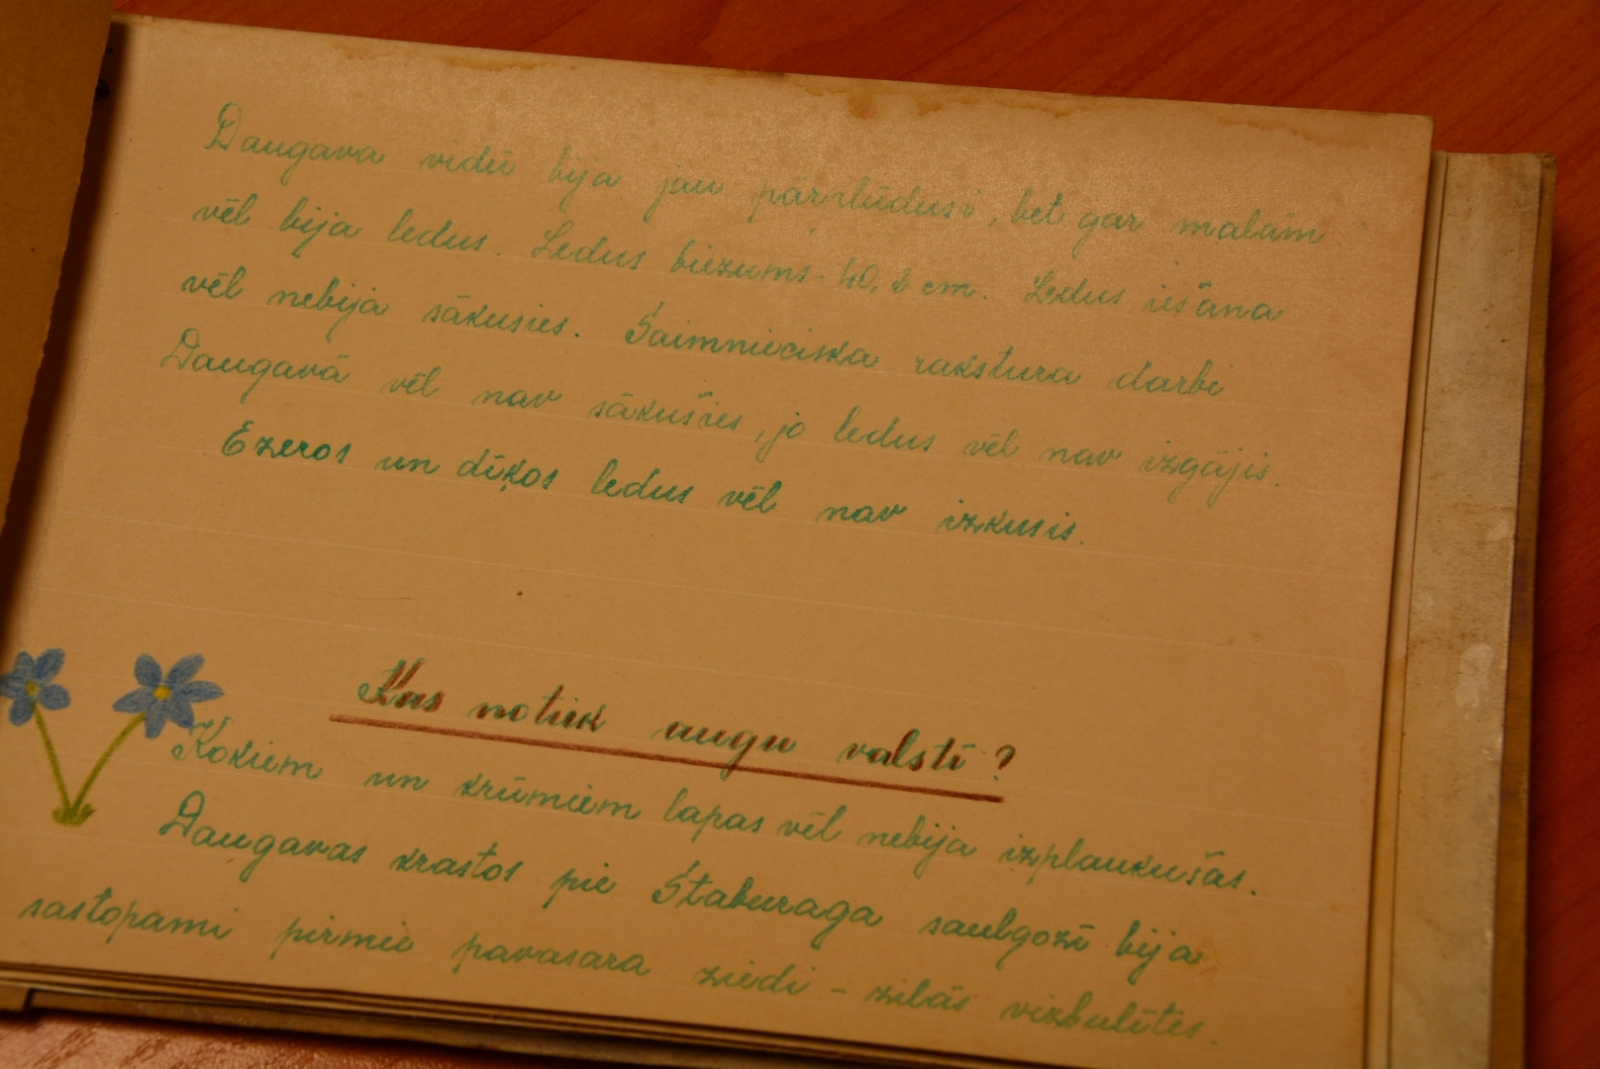 Daugava vidū bija jau pārplūdusi, bet gar malām
vēl bija ledus. Ledus biezums - 40,2 cm. Ledus iešana
vēl nebija sākusies. Saimnieciska rakstura darbi
Daugavā vēl nav sākušies, jo ledus vēl nav izgājis.
Ezeros un dīķos ledus vēl nav izkusis.
Kas notiek augu valstī?
Kokiem un krūmiem lapas vēl nebija izplaukušas.
Daugavas krastos pie Staburaga saulgozī bija
sastopami pirmie pavasara ziedi - zilās vizbulītes.